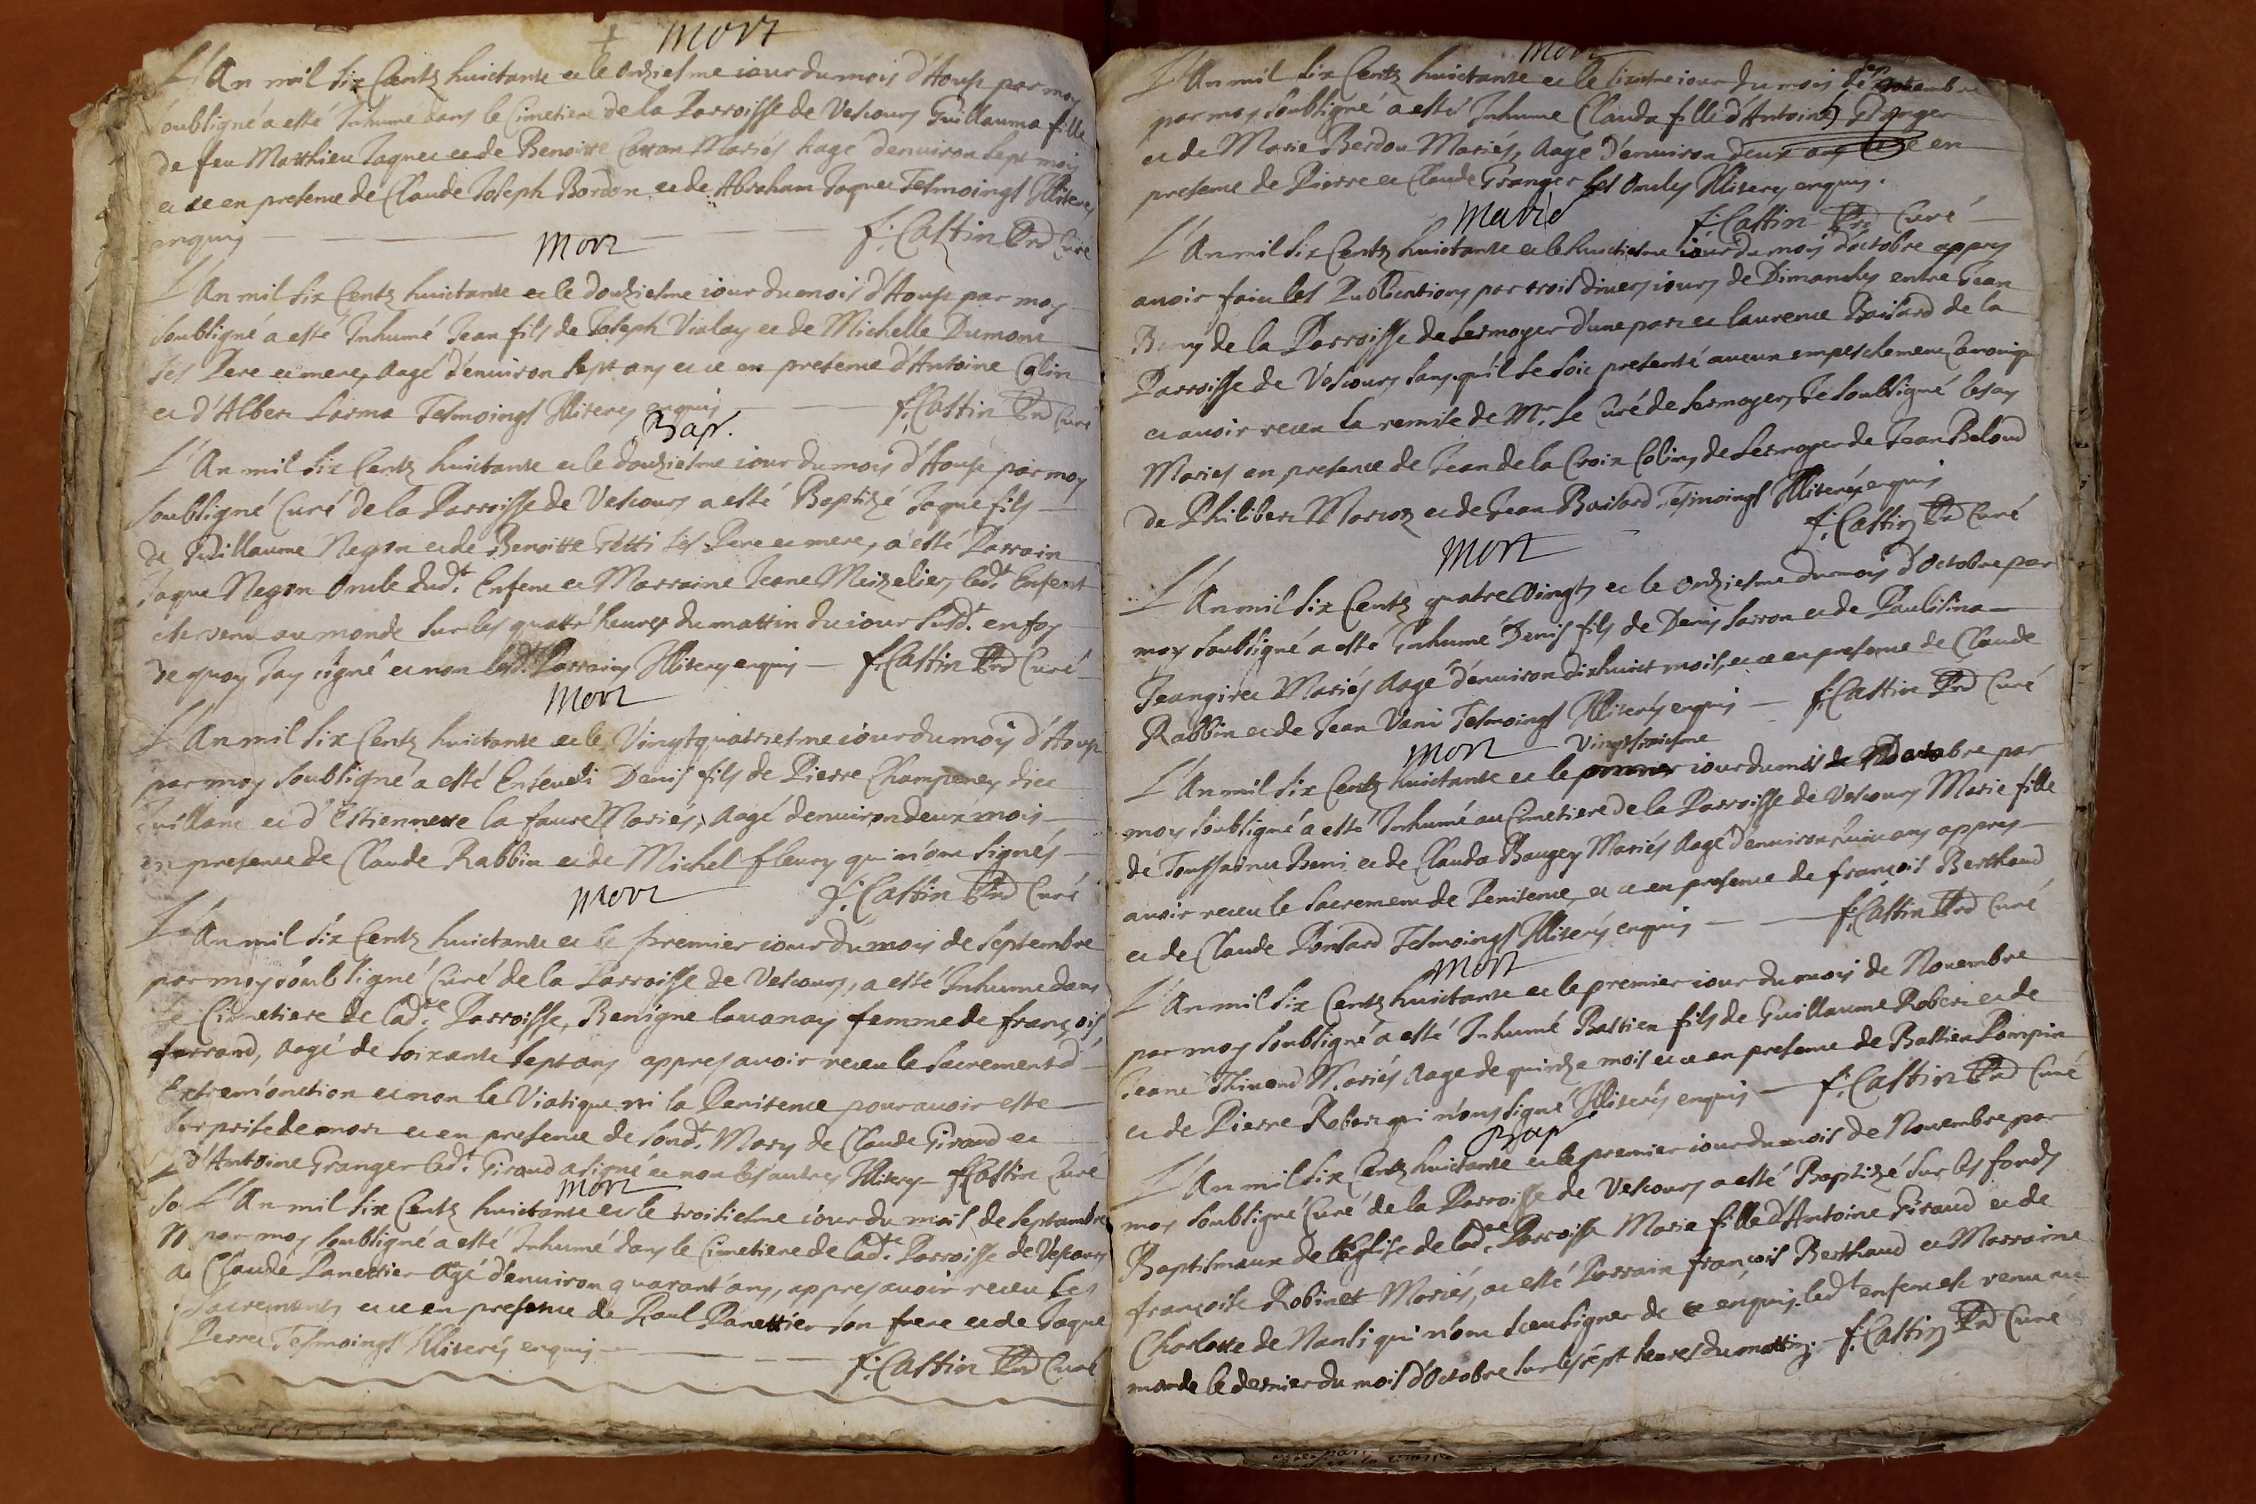 mort
L'An mil six Centz huictante et le Onziesme iour du mois d'Aoust par moy
soubsigné a esté Inhumé dans le Cimetiere de la Parroisse de Vescours Guillauma fille
de feu Matthieu Jaquet et de Benoitte Cottan Mariés Aagé d'enuiron sept mois
et ce en presence de Claude Joseph Bordon et de Abraham Jaquet Tesmoings Illiteres
enquis f: Castin Prd Curé
mort
L'An mil six Centz huictante et le douziesme iour du mois d'Aoust par moy
soubsigné a esté Inhumé Jean fils de Joseph Vialay et de Michelle Dumont
ses Pere et mere, Aagé d'enuiron sept ans et ce en presence d'Antoine Colin
et d'Albert Larma Tesmoings Illiteres enquis f: Castin Prd Curé
Bapt.
L'An mil six Centz huictante et le douziesme iour du mois d'Aoust par moy
soubsigné Curé de la Parroisse de Vescours a esté Baptizé Jaque fils
de Guillaume Negon et de Benoitte Getti ses Pere et mere, a esté Parrain
Jaque Negon Oncle dudt. Enfent et Marraine Jeane Muizelier, ledt. Enfent
est venu au monde sur les quattre heures du mattin du iour susdt. en foy
de quoy Jay signé et non lesdts Parrains Illiteres enquis f: Castin Prd Curé
Mort
L'An mil six Centz huictante et le Vingtquatriesme iour du moy d'Aoust
par moy soubsigné a esté Enseueli Denis fils de Pierre Champeney dict
Guillane et d'Estiennette la faure Mariés, Aagé d'enuiron deux mois
en presence de Claude Rabbin et de Michel fleury qui n'ont signés
Mort f: Castin Prd Curé
L'An mil six Centz huictante et le premier iour du mois de septembre
par moy soubsigné Curé de la Parroisse de Vescours, a esté Inhume dans
le Cimetiere de ladte. Parroisse, Benigne lauanay femme de françois
ferrand, Aagé de soixante sept ans appres avoir receu le Sacrement d'
Extrem'onction et non le Viatique ni la Penitence pour avoir este
surprise de mort et en presence de sondt. Mary de Claude Giraud et
d'Antoine Granger ledt. Giraud a signé et non les autres Illiters f: Castin Curé
Mort
L'An mil six Centz huictante et le troisiesme iour du mois de septambre
par moy soubsigné a esté Inhumé dans le Cimetiere de ladte. Parroisse de Vescours
Claude Panettier Agé d'enuiron quarant'ans, appres avoir receu les
Sacrements et ce en presence de Paul Panettier son frere et de Jaque
Perret Tesmoings Illiterés enquis
f: Castin Prd Curé
Mort
L'An mil six Centz huictante et le sixiesme iour du mois de septembre
par moy soubsigné a esté Inhumé Clauda fille d'Antoine Granger
et de Marie Berdon Mariés, Aagé d'enuiron deux ans et ce en
presence de Pierre et Claude Granger ses Oncles Illiteres enquis.
Marié f: Castin Prd Curé
L'An mil six Centz huictante et le huictiesme iour du mois d'octobre appres
avoir faict les Publications par trois diuers iours de Dimanches entre Jean
de la Parroisse de Sermoyer d'une part et laurence Baisard de la
Parroisse de Vescours sans qu'il se soit presenté aucun empeschement Canonique
et avoir receu la remise de Mr. le Curé de Sermoyer, Je soubsigné les ay
Mariés en presence de Jean de la Croix Colin, de Sermoyer de Jean Beloud
de Philibert Marcoz et de Jean Baisard Tesmoings Illiterés enquis
Mort f: Castin Prd Curé
L'An mil six Centz quatre Vingts et le Onziesme du mois d'Octobre par
moy soubsigné a esté Inhumé Denis fils de Denis Sarron et de Paulisina
Jeangiret Mariés Aagé d'enuiron dixhuict mois, et ce en presence de Claude
Rabbin et de Jean Vani Tesmoings Illiterés enquis f: Castin Prd Curé
Mort Vingtroiesme
L'An mil six Centz huictante et le premier iour du mois de Octobre par
moy soubsigné a esté Inhumé au Cimetiere de la Parroisse de Vescours Marie fille
de Toussainct Beni et de Clauda Baugey Mariés Aagé d'enuiron huict ans appres
avoir receu le Sacrement de Penitence, et ce en presence de françois Berthaud
et de Claude Ponsard Tesmoings Illiterés enquis f: Castin Prd Curé
Mort
L'An mil six Centz huictante et le premier iour du mois de Nouembre
par moy soubsigné a esté Inhumé Bastien fils de Guillaume Robert et de
Jeane Thinond Mariés Aagé de quindze mois et ce en presence de Bastien Pompin
et de Pierre Robert qui n'ont signé Illiterés enquis f: Castin Prd Curé
Bapt
L'An mil six Centz huictante et le premier iour du mois de Nouembre par
moy soubsigné Curé de la Parroisse de Vescours a esté Baptizé sur les fonds
Baptismaux de l'Eglise de ladte. Parroisse Marie fille d'Antoine Giraud et de
françoise Robinet Mariés, a esté Parrain françois Berthaud et Marraine
Charlotte de Nanti qui n'ont sceu signer de ce enquis. ledt enfent est venu au
monde le dernier du mois d'Octobre sur les sept heures du mattin. f: Castin Prd Curé